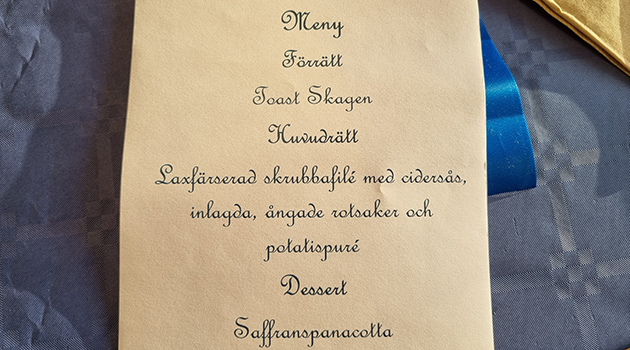 Meny
Förrätt
Toast Skagen
Huvudrätt
Laxfärserad skrubbafilé med cidersås,
inlagda, ångade rotsaker och
potatispuré
Dessert
Saffranspanacotta